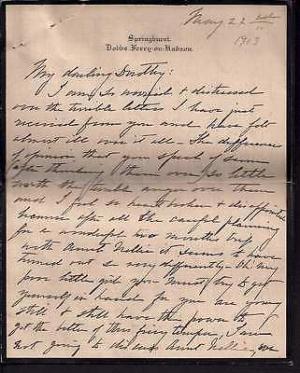 May 22nd
1913
Springhurst
Dobbs Ferry-on-Hudson
My darling Dorothy:
I am so worried & distressed
over the terrible letter I have just
received from you and have felt
almost ill over it all. The differences
of opinion that you speak of seem
after thinking them over so little
worth the terrible anger over them
and I feel so heartbroken & disappointed
after all the careful planning
for a wonderful two months trip
with Aunt Nellie it seems to have
turned out so very differently - Oh my
poor little girl you must try to get
yourself in hand for you are young
still & still have the power to
get the better of this fiery temper, I am
not going to discuss Aunt Nellie,